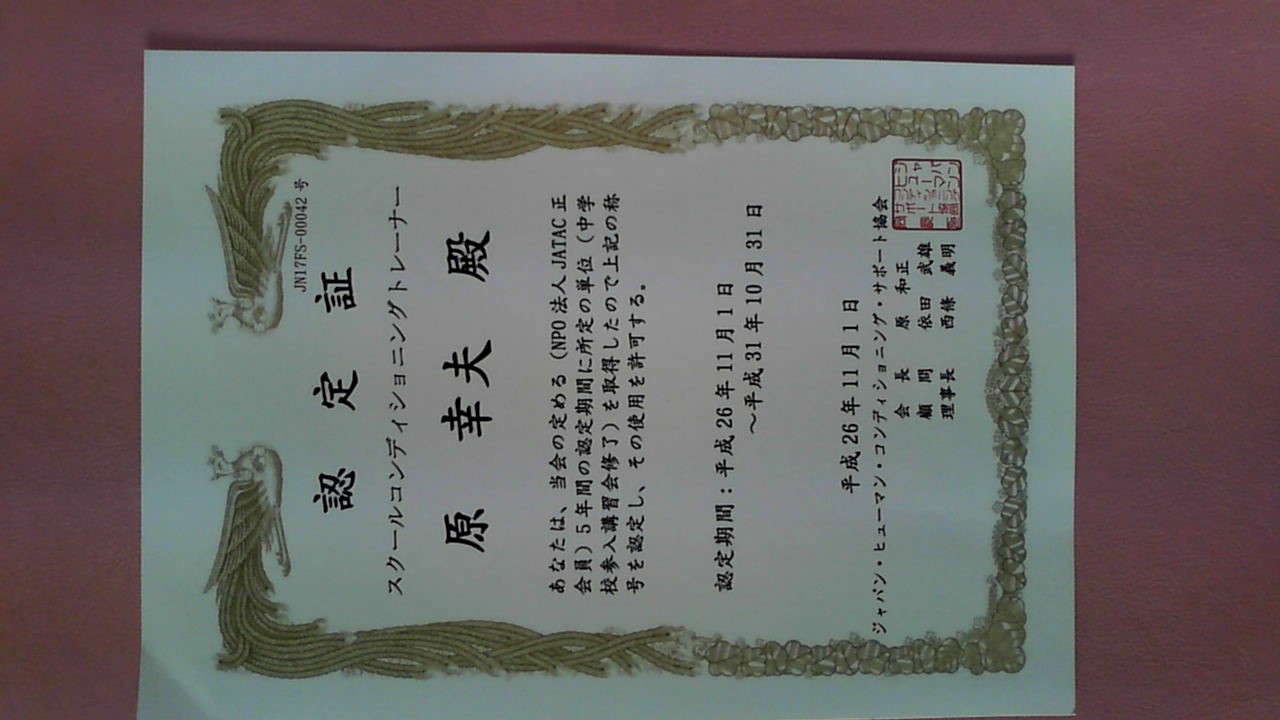 JN17FS-00042 号
認定証
スクールコンディショニングトレーナー
原 幸夫 殿
あなたは、当会の定める（NPO 法人 JATAC 正
会員）5 年間の認定期間に所定の単位（中学
校参入講習会修了）を取得したので上記の称
号を認定し、その使用を許可する。
認定期間：平成 26 年 11 月 1 日
～平成 31 年 10 月 31 日
平成 26 年 11 月 1 日
ジャパン・ヒューマン・コンディショニング・サポート協会
会 長 原 和正
顧 問 依田 武雄
理事長 西條 義明